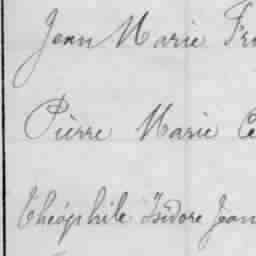 Jean Marie Fr
Pierre Marie Ce
Théophile Isidore Jean